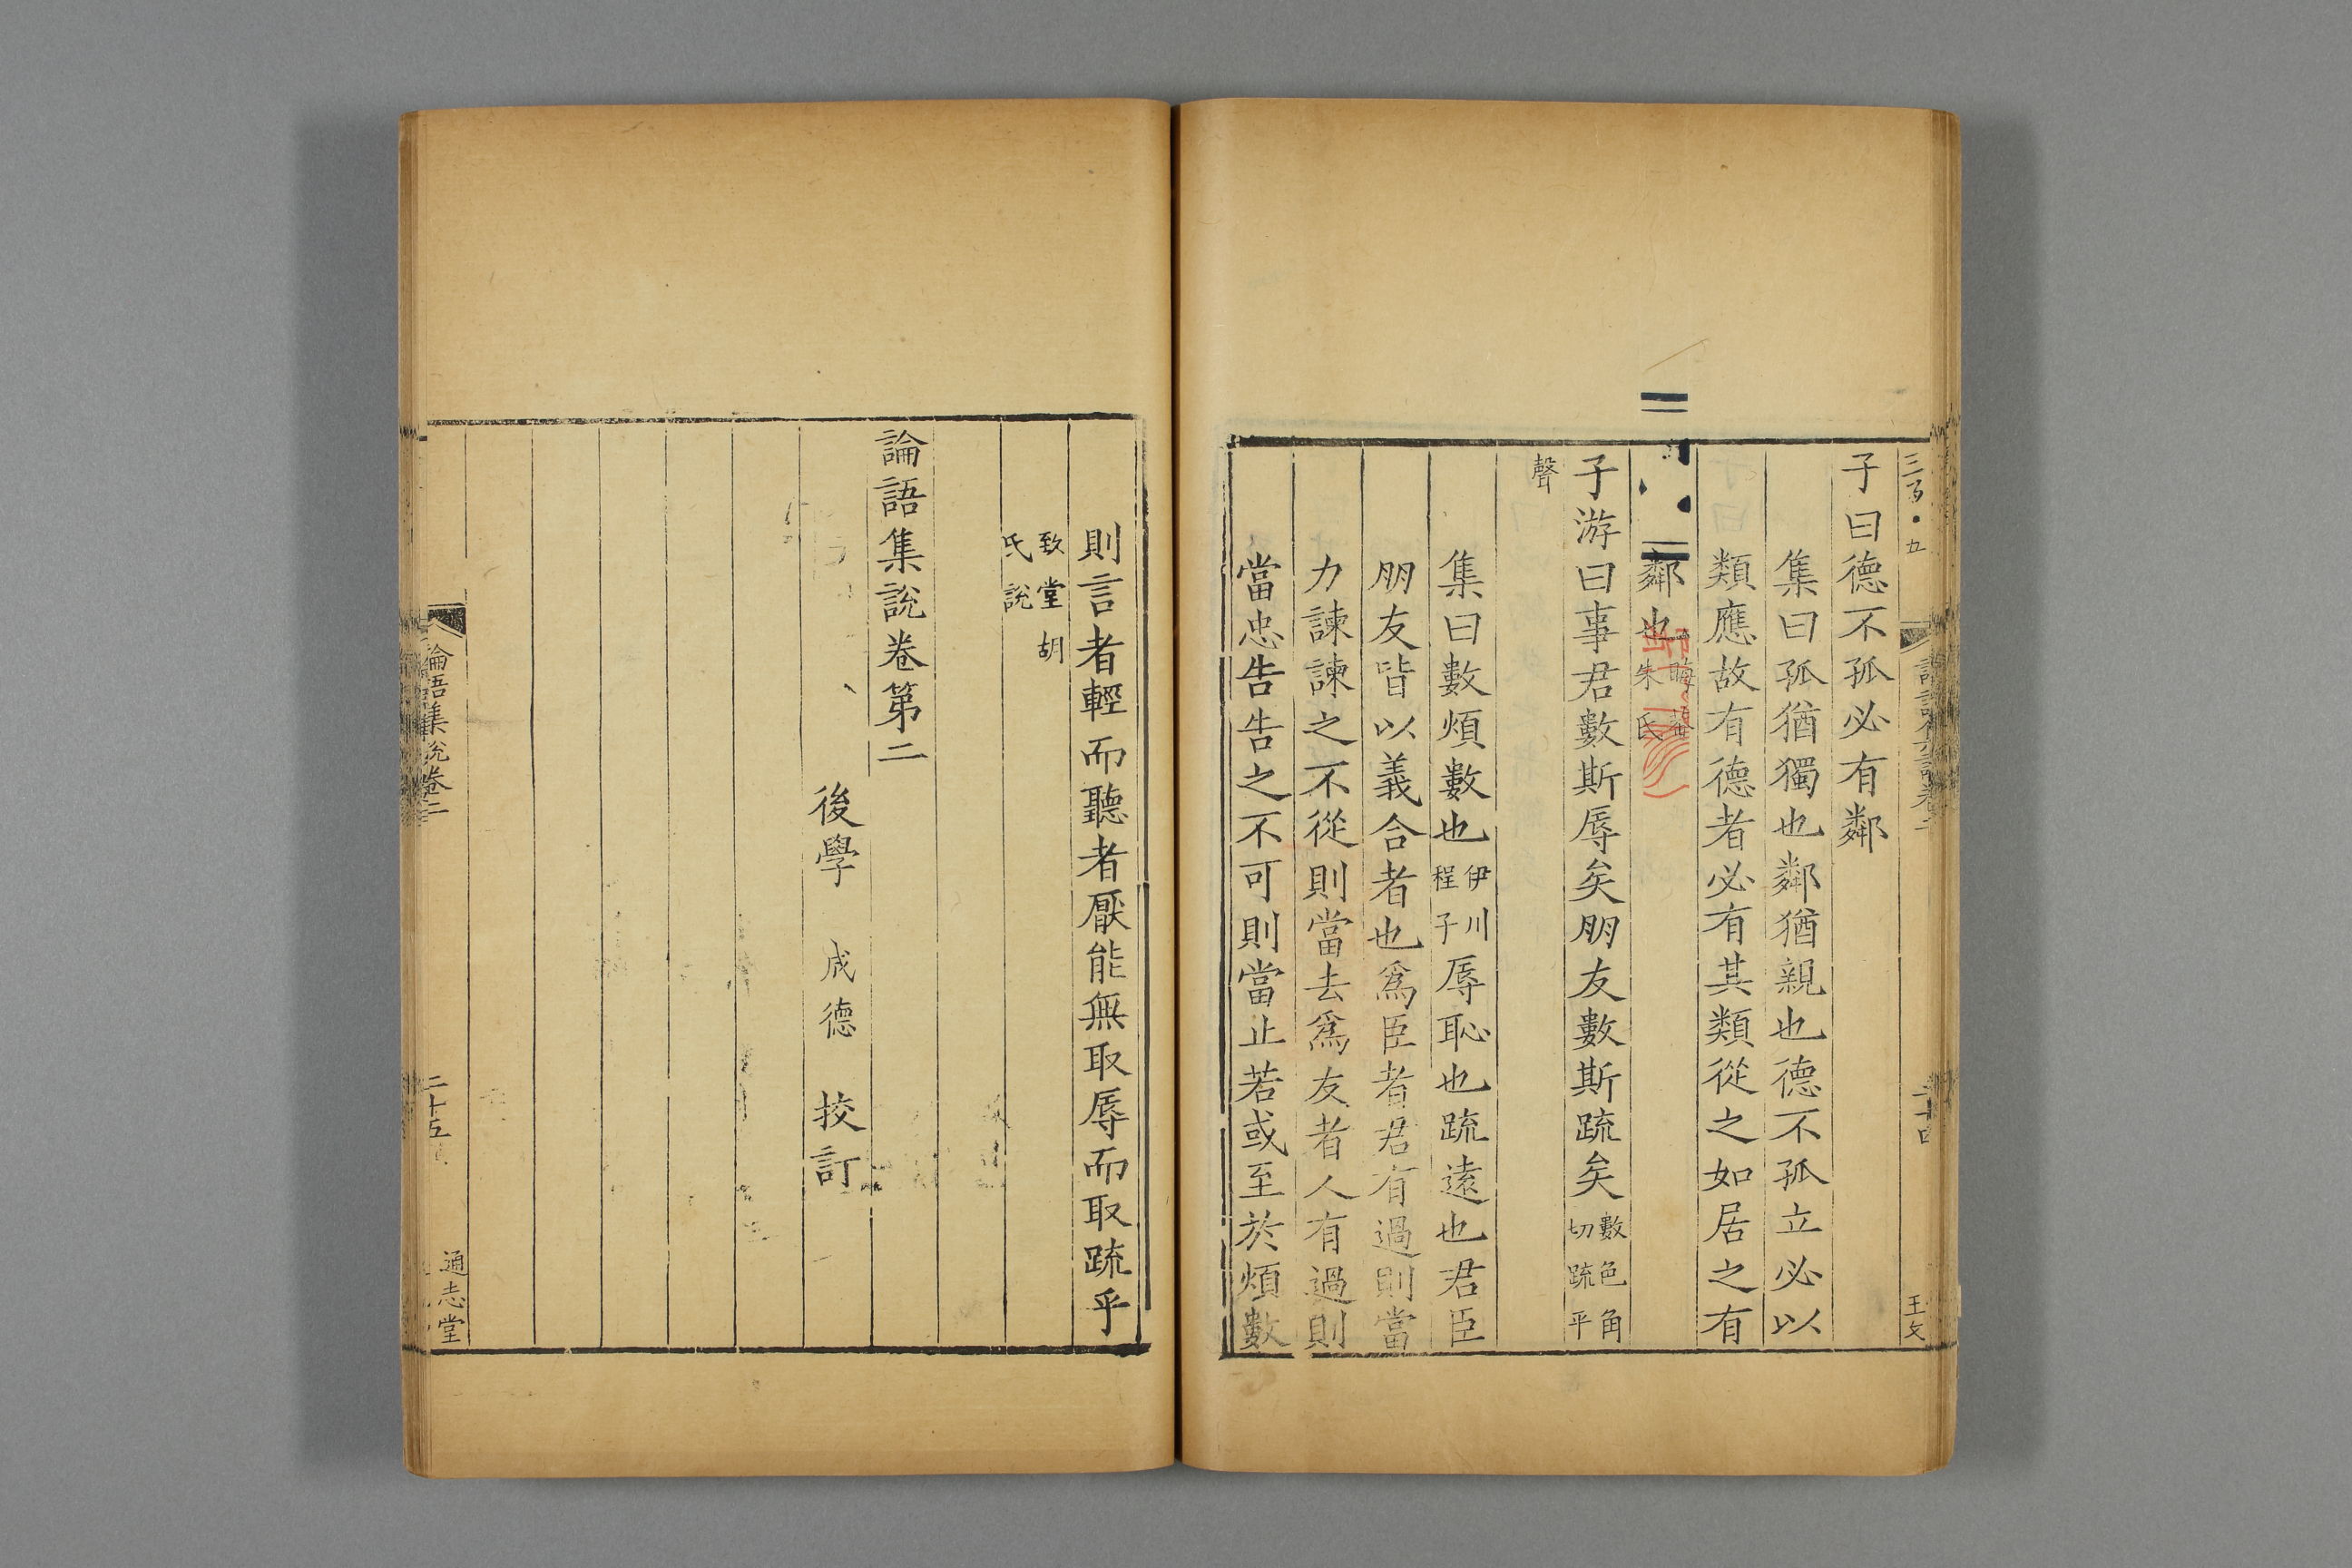 子曰德不孤必有鄰
集曰孤猶獨也鄰猶親也德不孤立必以
類應故有德者必有其類從之如居之有
鄰也晦菴朱氏
子游曰事君數斯辱矣朋友數斯疏矣數色角切疏平
聲
集曰數煩數也伊川程子辱恥也疏遠也君臣
朋友皆以義合者也爲臣者君有過則當
力諫諫之不從則當去爲友者人有過則
當忠告告之不可則當止若或至於煩數
則言者輕而聽者厭能無取辱而取疏乎
致堂胡氏說
論語集說卷第二
後學 成德 挍訂
論語集說卷二
二十五
通志堂